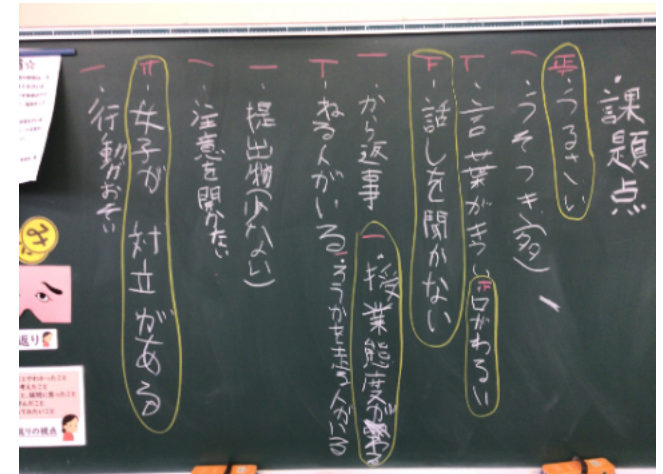 課題点
正一・うるさい
一・うそつき(多)
丅・言葉がきつい
正口がわるい
下・話しを聞かない
一・から返事
一・授業態度が
丅・ねる人がいる
一・ろうかを走る人がいる
一・提出物(少ない)
一・注意を聞かない
・女子が対立がある
一・行動がおそい
み
返り
返りの視点